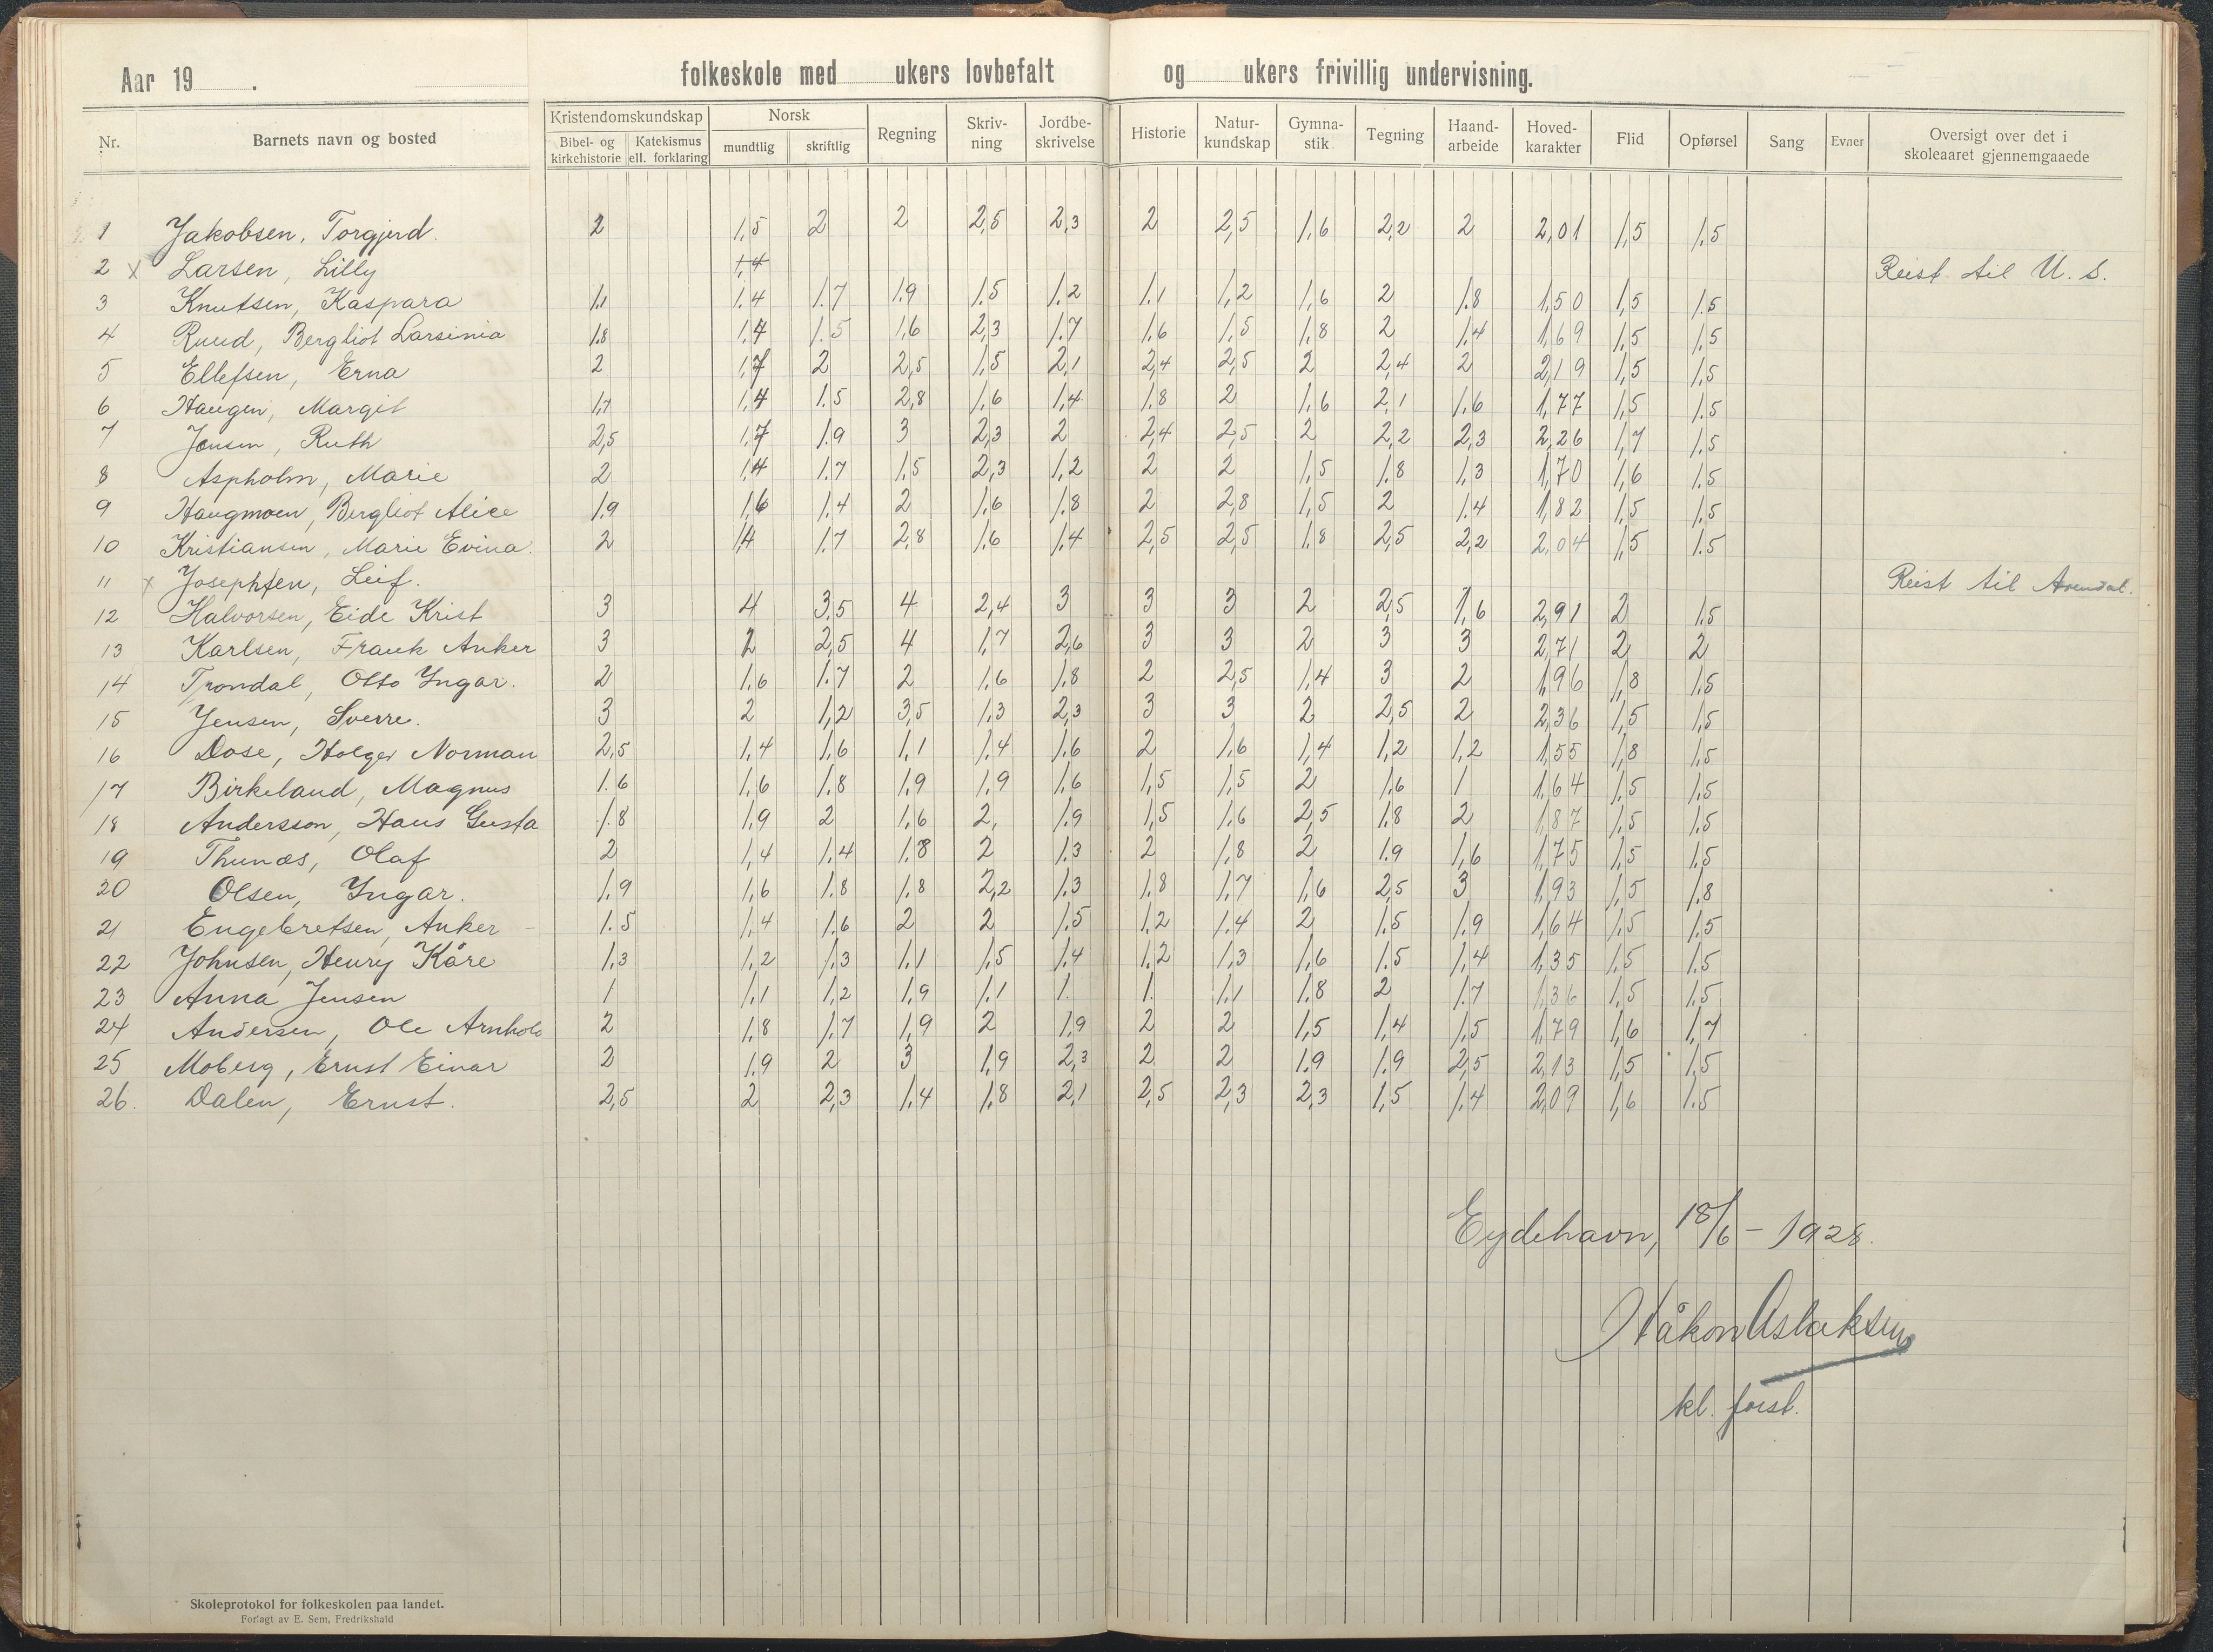 Aar 19 . folkeskole med ukers lovbefalt og ukers frivillig undervisning.
Nr. Barnets navn og bosted Kristendomskundskap Bibel- og kirkehistorie Katekismus ell. forklaring Norsk mundtlig skriftlig Regning Skriv-ning Jordbe-skrivelse Historie Natur-kundskap Gymna-stik Tegning Haand-arbeide Hoved-karakter Flid Opførsel Sang Evner Oversigt over det i skoleaaret gjennemgaaede
1 Jakobsen, Torgjerd. 2 1,5 2 2 2,5 2,3 2 2,5 1,6 2,2 2 2,01 1,5 1,5
2 x Larsen, Lilly 1,4 Reist til U. S.
3 Knutsen, Kaspara 1,1 1,4 1,7 1,9 1,5 1,2 1,1 1,2 1,6 2 1,8 1,50 1,5 1,5
4 Ruud, Bergliot Larsinia 1,8 1,4 1,5 1,6 2,3 1,7 1,6 1,5 1,8 2 1,4 1,69 1,5 1,5
5 Ellefsen, Erna 2 1,7 2 2,5 1,5 2,1 2,4 2,5 2 2,4 2 2,19 1,5 1,5
6 Haugen, Margit 1,7 1,4 1,5 2,8 1,6 1,4 1,8 2 1,6 2,1 1,6 1,77 1,5 1,5
7 Jensen, Ruth 2,5 1,7 1,9 3 2,3 2 2,4 2,5 2 2,2 2,3 2,26 1,7 1,5
8 Aspholm, Marie 2 1,4 1,7 1,5 2,3 1,2 2 2 1,5 1,8 1,3 1,70 1,6 1,5
9 Haugmoen, Bergliot Alice 1,9 1,6 1,4 2 1,6 1,8 2 2,8 1,5 2 1,4 1,82 1,5 1,5
10 Kristiansen, Marie Evina. 2 1,4 1,7 2,8 1,6 1,4 2,5 2,5 1,8 2,5 2,2 2,04 1,5 1,5
11 x Josephsen, Leif. Reist til Arendal.
12 Halvorsen, Eide Krist 3 4 3,5 4 2,4 3 3 3 2 2,5 1,6 2,91 2 1,5
13 Karlsen, Frank Anker 3 2 2,5 4 1,7 2,6 3 3 2 3 3 2,71 2 2
14 Trondal, Otto Yngar. 2 1,6 1,7 2 1,6 1,8 2 2,5 1,4 3 2 1,96 1,8 1,5
15 Jensen, Sverre. 3 2 1,2 3,5 1,3 2,3 3 3 2 2,5 2 2,36 1,5 1,5
16 Dose, Holger Norman 2,5 1,4 1,6 1,1 1,4 1,6 2 1,6 1,4 1,2 1,2 1,55 1,8 1,5
17 Birkeland, Magnus 1.6 1,6 1,8 1,9 1,9 1,6 1,5 1,5 2 1,6 1 1,64 1,5 1,5
18 Andersson, Hans Gusta 1.8 1,9 2 1,6 2, 1,9 1,5 1,6 2,5 1,8 2 1,87 1,5 1,5
19 Thunæs, Olaf 2 1,4 1,4 1,8 2 1,3 2 1,8 2 1,9 1,6 1,75 1,5 1,5
20 Olsen, Yngar. 1,9 1,6 1,8 1,8 2,2 1,3 1,8 1,7 1,6 2,5 3 1,93 1,5 1,8
21 Engebretsen, Anker 1.5 1,4 1,6 2 2 1,5 1,2 1,4 2 1,5 1,9 1,64 1,5 1,5
22 Johnsen, Henry Kåre 1,3 1,2 1,3 1,1 1,5 1,4 1,2 1,3 1,6 1,5 1,4 1,35 1,5 1,5
23 Anna Jensen 1 1,1 1,2 1,9 1,1 1. 1. 1,1 1,8 2 1,7 1,36 1,5 1,5
24 Andersen, Ole Arnhold 2 1,8 1,7 1,9 2 1,9 2 2 1,5 1,4 1,5 1,79 1,6 1,7
25 Moberg, Ernst Einar 2 1,9 2 3 1,9 2,3 2 2 1,9 1,9 2,5 2,13 1,5 1,5
26. Dalen, Ernst. 2,5 2 2,3 1,4 1,8 2,1 2,5 2,3 2,3 1,5 1,4 2,09 1,6 1.5
Eydehavn, 18/6 - 1928.
Håkon Aslaksen
kl. forst.
Skoleprotokol for folkeskolen paa landet.
Forlagt av E. Sem, Fredrikshald